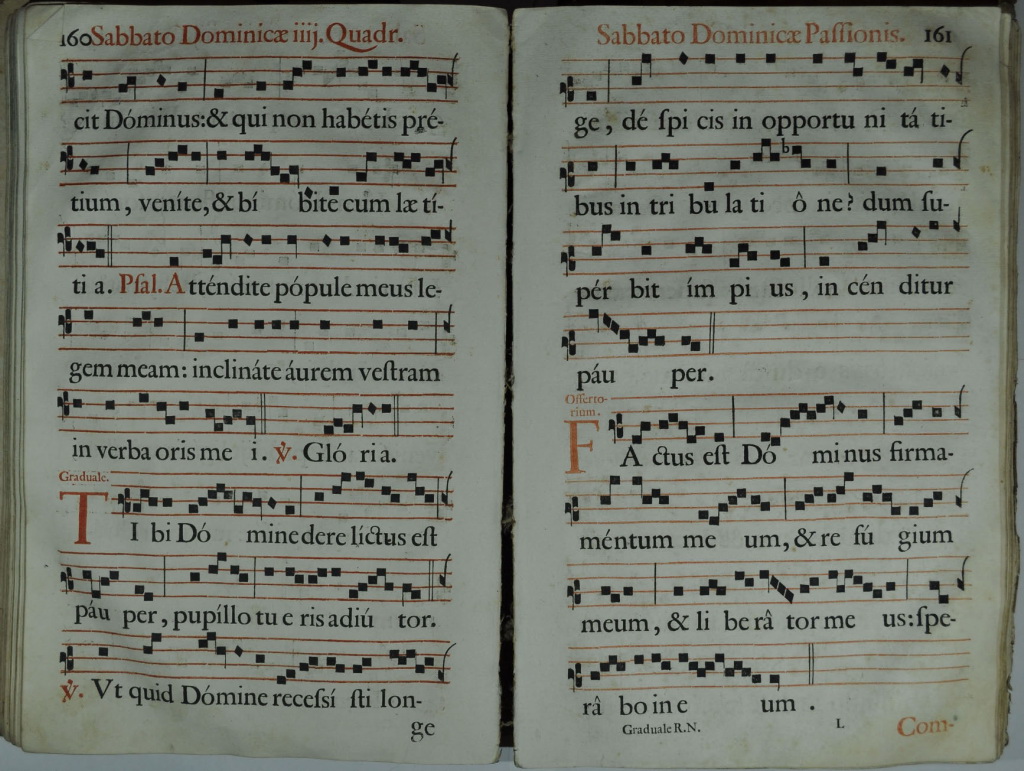 160 Sabbato Dominicæ iiij. Quadr.
cit Dóminus:& qui non habétis pré-
tium, veníte,& bí bite cum læ tí-
ti a. Pſal. A tténdite pópule meus le-
gem meam: inclináte áurem veſtram
in verba oris me i. ℣. Gló ri a.
Graduale.
T I bi Dó mine dere líctus eſt
páu per, pupíllo tu e ris adiú tor.
℣. Vt quid Dómine receſsí ſti lon-
ge
Sabbato Dominicæ Paſſionis. 161
ge, dé ſpi cis in opportu ni tá ti-
bus in tri bu la ti ô ne? dum ſu-
pér bit ím pi us, in cén ditur
páu per.
Offerto-
rium.
F A ctus eſt Dó mi nus firma-
méntum me um, & re fú gium
meum, & li be râ tor me us: ſpe-
râ bo in e um.
Graduale R.N. L Com-